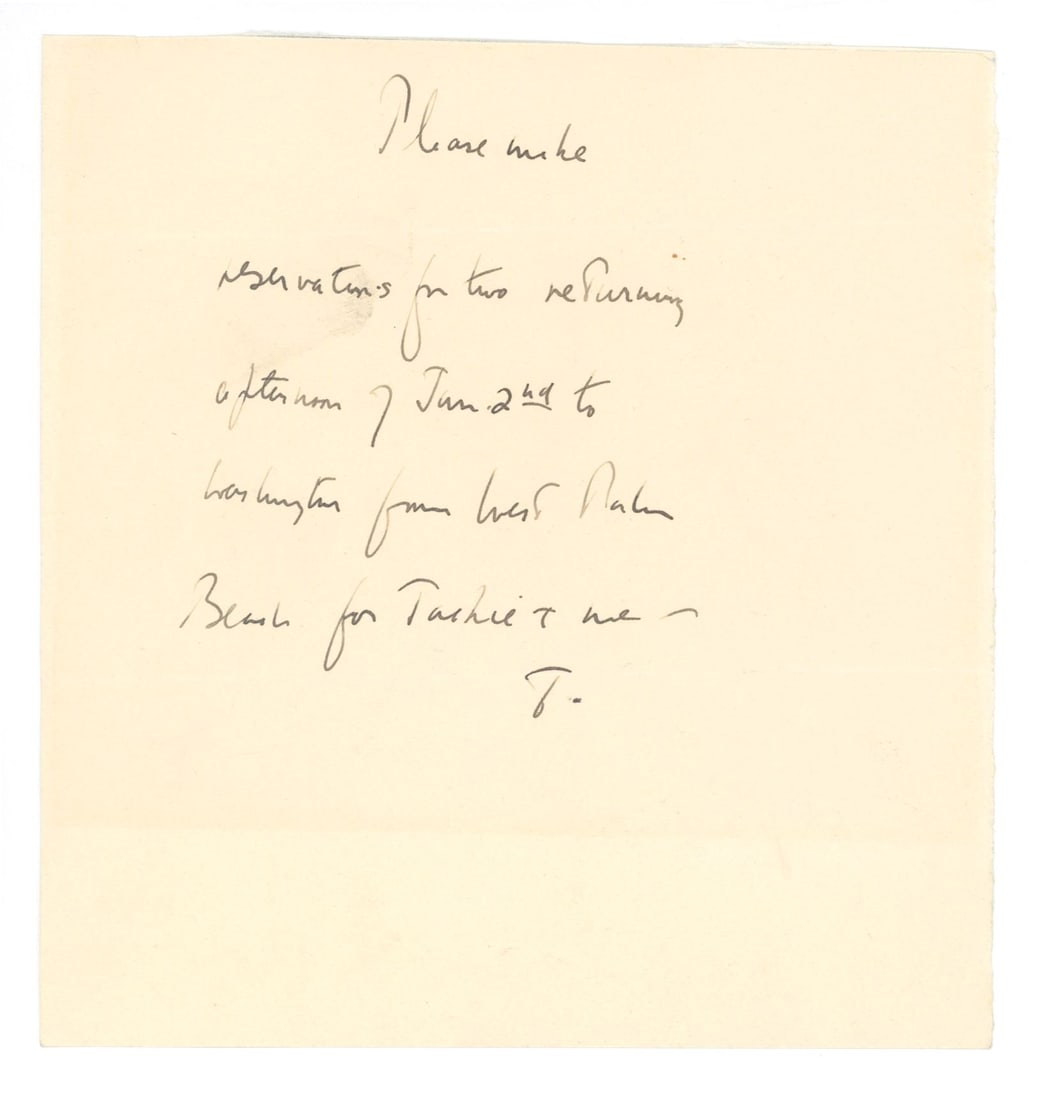 Please make
reservations for two returning
afternoon of Jan. 2nd to
Washington from West Palm
Beach for Jackie + me –
J.